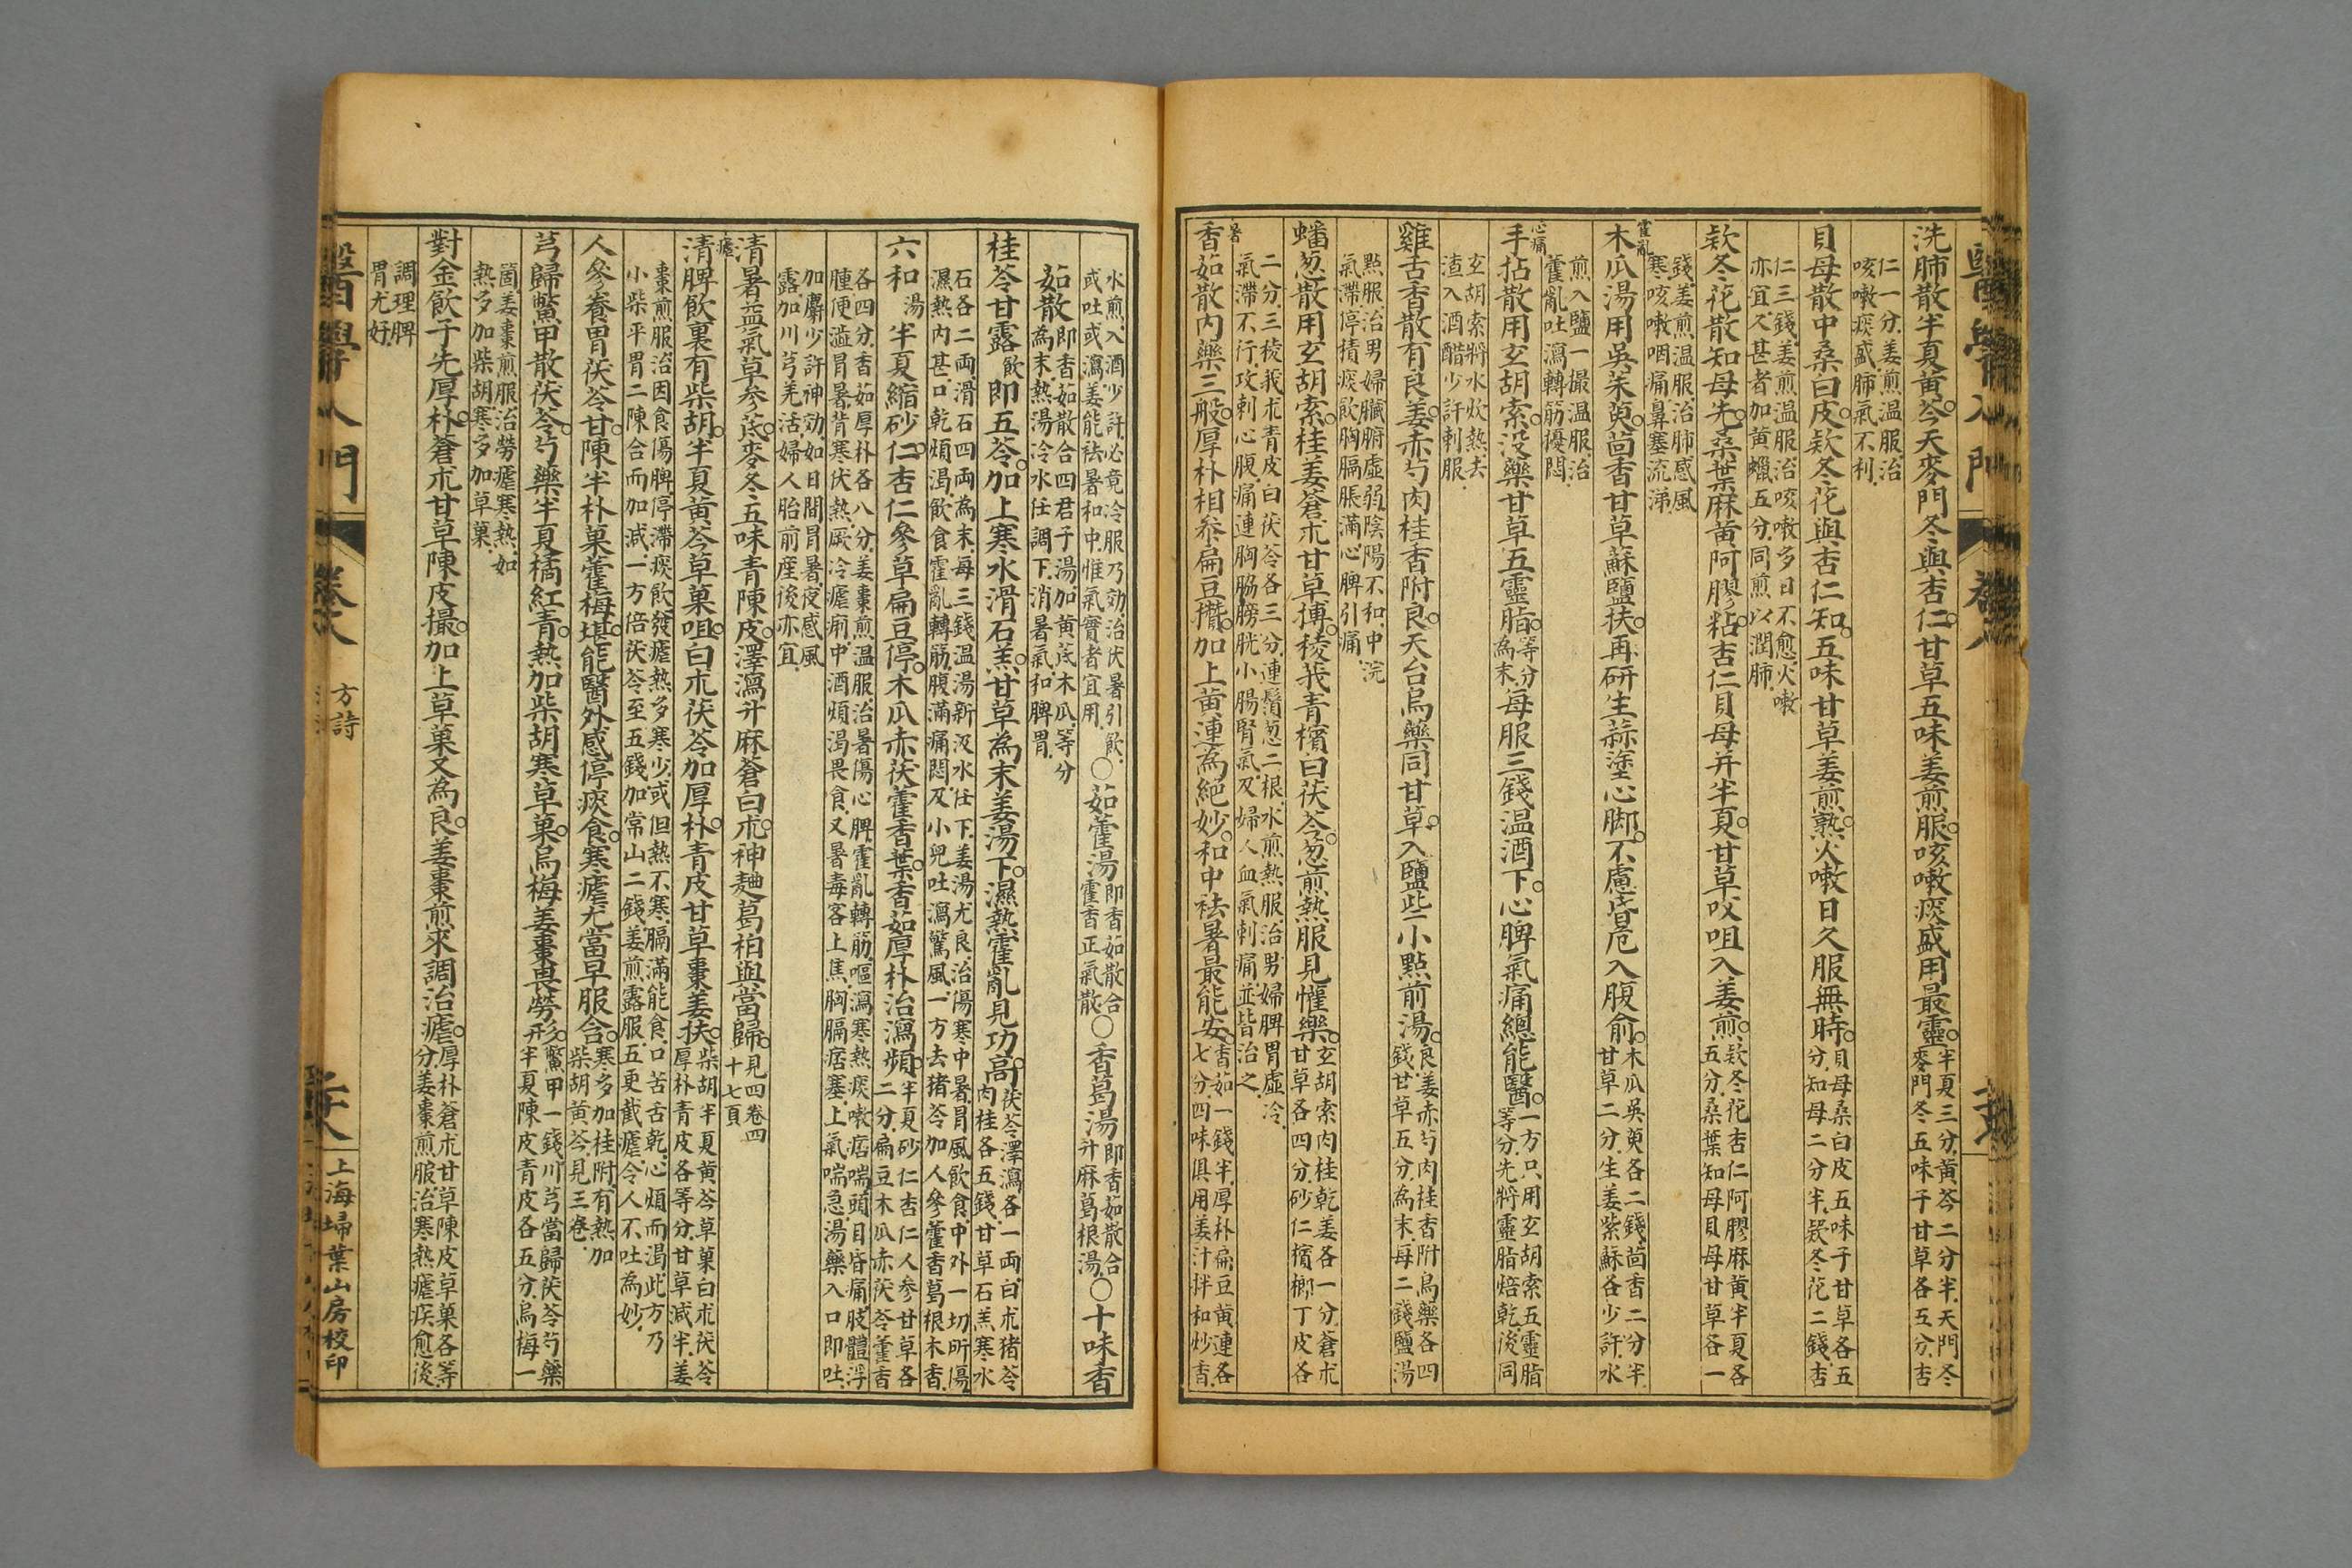 醫學入門
洗肺散半夏黄芩天麥門冬與杏仁甘草五味姜煎服咳嗽痰盛用最靈半夏三分黄芩二分半天門冬麥門冬五味子甘草各五分杏
仁一分姜煎温服治咳嗽痰盛肺氣不利
貝母散中桑白皮欵冬花與杏仁知五味甘草姜煎熟火嗽日久服無時貝母桑白皮五味子甘草各五分知母二分半欵冬花二錢杏
仁三錢姜煎温服治咳嗽多日不愈火嗽亦宜久甚者加黄蠟五分同煎以潤肺
欵冬花散知母先桑葉麻黄阿膠粘杏仁貝母并半夏甘草㕮咀入姜煎欵冬花杏仁阿膠麻黄半夏各五分桑葉知母貝母甘草各一
錢姜煎温服治肺感風寒咳嗽咽痛鼻塞流涕
霍亂
木瓜湯用吳茱萸茴香甘草蘇鹽扶再研生蒜塗心脚不慮昏危入腹俞木瓜吳萸各二錢茴香二分半甘草二分生姜紫蘇各少許水
煎入鹽一撮温服治霍亂吐瀉轉筋擾悶
心痛
手拈散用玄胡索没藥甘草五靈脂等分為末每服三錢温酒下心脾氣痛總能醫一方只用玄胡索五靈脂等分先將靈脂焙乾後同
玄胡索將水炊熱去渣入酒醋少許刺服
雞舌香散有良姜赤芍肉桂香附良天台烏藥同甘草入鹽些小點前湯良姜赤芍肉桂香附烏藥各四錢甘草五分為末每二錢鹽湯
點服治男婦臟腑虚弱陰陽不和中浣氣滯停積痰飲胸膈脹滿心脾引痛
蟠葱散用玄胡索桂姜蒼朮甘草摶稜莪青檳白茯苓葱煎熱服見懽樂玄胡索肉桂乾姜各一分蒼朮甘草各四分砂仁檳榔丁皮各
二分三稜莪朮青皮白茯苓各三分連鬚葱二根水煎熱服治男婦脾胃虚冷氣滯不行攻刺心腹痛連胸脇膀胱小腸腎氣及婦人血氣刺痛並皆治之
暑
香茹散内藥三般厚朴相參扁豆攢加上黄連為絕妙和中袪暑最能安香茹一錢半厚朴扁豆黄連各七分四味俱用姜汁拌和炒香
水煎入酒少許必竟冷服乃効治伏暑引飲或吐或瀉姜能袪暑和中惟氣實者宜用〇茹藿湯即香茹散合藿香正氣散〇香葛湯即香茹散合升麻葛根湯〇十味香
茹散即香茹散合四君子湯加黄茋木瓜等分為末熱湯冷水任調下消暑氣和脾胃
桂苓甘露飲即五苓加上寒水滑石羔甘草為末姜湯下濕熱霍亂見功高茯苓澤瀉各一両白朮猪苓肉桂各五錢甘草石羔寒水
石各二両滑石四両為末每三錢温湯新汲水任下姜湯尤良治傷寒中暑冒風飲食中外一切所傷濕熱内甚口乾煩渴飲食霍亂轉筋腹滿痛悶及小兒吐瀉驚風一方去猪苓加人參藿香葛根木香
六和湯半夏縮砂仁杏仁參草扁豆停木瓜赤茯藿香葉香茹厚朴治瀉頻半夏砂仁杏仁人參甘草各二分扁豆木瓜赤茯苓藿香
各四分香茹厚朴各八分姜棗煎温服治暑傷心脾霍亂轉筋嘔瀉寒熱痰嗽痞喘頭目昏痛肢體浮腫便澁冒暑背寒伏熱厥冷瘧痢中酒煩渴畏食又暑毒客上焦胸膈痞塞上氣喘急湯藥入口即吐
加麝少許神効如日間冒暑夜感風露加川芎羌活婦人胎前産後亦宜
清暑益氣草參茋麥冬五味青陳皮澤瀉升麻蒼白朮神麯葛柏與當歸見四卷四十七頁
瘧
清脾飲裏有柴胡半夏黄芩草菓咀白朮茯苓加厚朴青皮甘草棗姜扶柴胡半夏黄芩草菓白朮茯苓厚朴青皮各等分甘草減半姜
棗煎服治因食傷脾停滯痰飲發瘧熱多寒少或但熱不寒膈滿能食口苦舌乾心煩而渴此方乃小柴平胃二陳合而加減一方倍茯苓至五錢加常山二錢姜煎露服五更截瘧令人不吐為妙
人參養胃茯苓甘陳半朴菓藿梅堪能醫外感停痰食寒瘧尤當早服含寒多加桂附有熱加柴胡黄芩見三卷
芎歸鱉甲散茯苓芍藥半夏橘紅青熱加柴胡寒草菓烏梅姜棗畏勞形鱉甲一錢川芎當歸茯苓芍藥半夏陳皮青皮各五分烏梅一
箇姜棗煎服治勞瘧寒熱如熱多加柴胡寒多加草菓
對金飲子先厚朴蒼朮甘草陳皮撮加上草菓又為良姜棗煎來調治瘧厚朴蒼朮甘草陳皮草菓各等分姜棗煎服治寒熱瘧疾愈後
調理脾胃尤好
醫學入門
方詩
上海埽葉山房校印